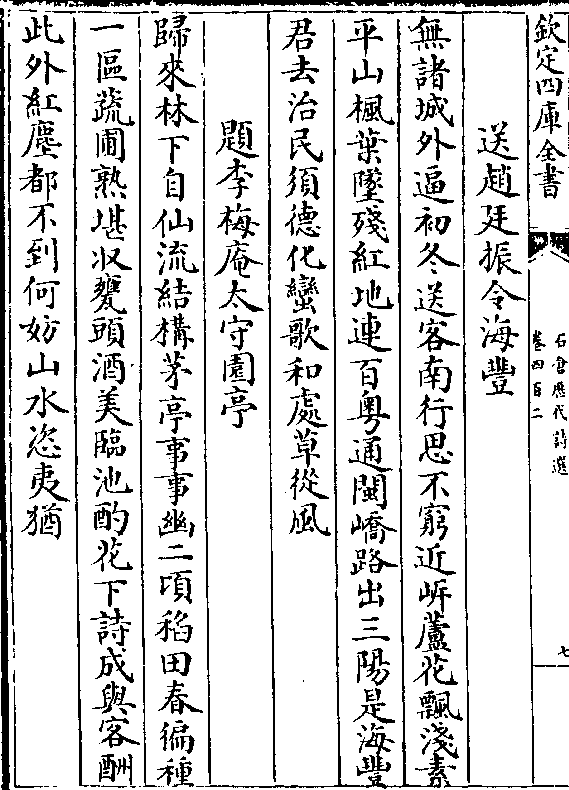 欽定四庫全書
石倉歷代詩選
卷四百二
七
送趙廷振令海豐
無諸城外逼初冬送客南行思不窮近岍蘆花飄淺素
平山楓葉墜殘紅地連百粤通閩嶠路出三陽是海豐
君去治民須德化蠻歌和處草從風
題李梅庵太守園亭
歸來林下自仙流結構茅亭事事幽二頃稻田春徧種
一區蔬圃熟堪收甕頭酒美臨池酌花下詩成與客酬
此外紅塵都不到何妨山水恣夷猶